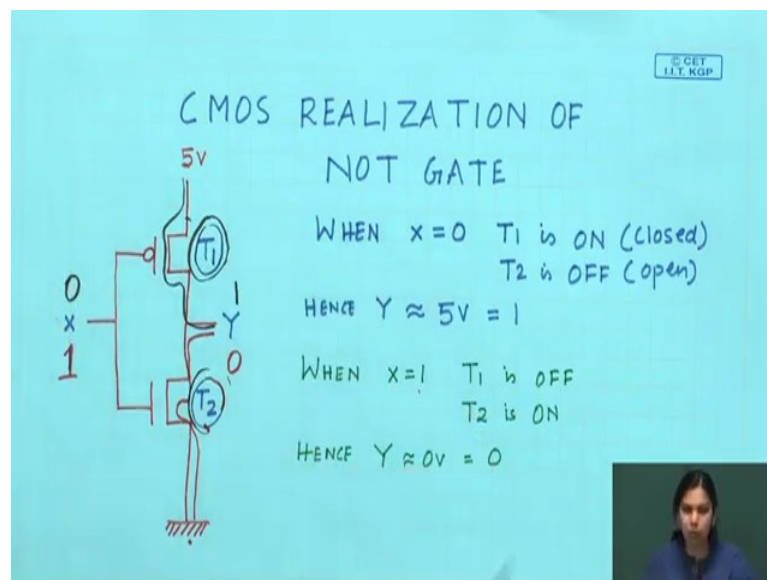 © CET
I.I.T. KGP
CMOS REALIZATION OF
NOT GATE
5V
T1
WHEN X=0 T1 is ON (Closed)
T2 is OFF (open)
0
1
X
Y
HENCE Y ≈ 5V = 1
1
0
WHEN X=1 T1 is OFF
T2 is ON
T2
HENCE Y ≈ 0V = 0